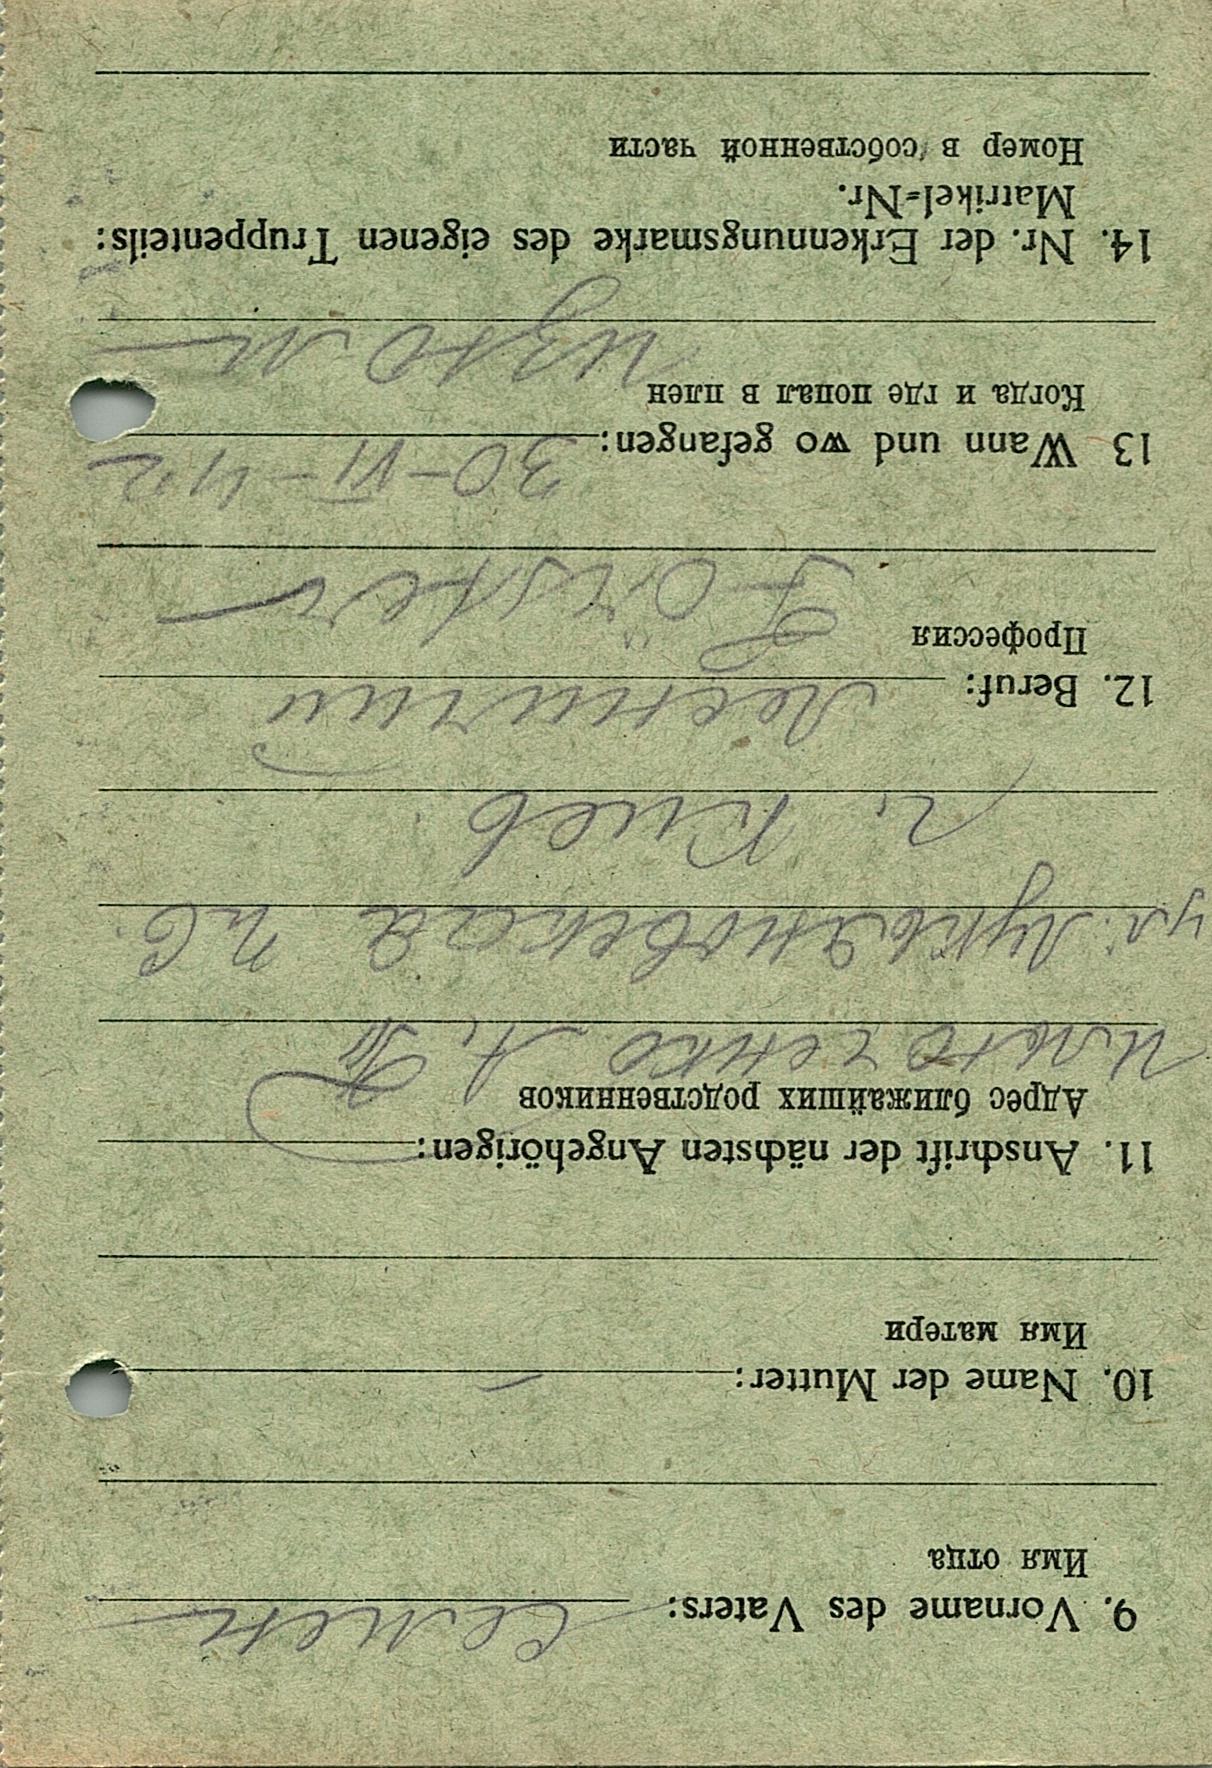 9. Vorname des Vaters: Семен
Имя отца
10. Name der Mutter: —
Имя матери
11. Anschrift der nächsten Angehörigen:
Адрес ближайших родственников
А. П.
ул. Лукьяновская n. 6.
г. Киев
12. Beruf: Лесничий
Профессия
Förster
13 Wann und wo gefangen: 30-VI-42
Когда и где попал в плен
Изюм
14. Nr. der Erkennungsmarke des eigenen Truppenteils:
Matrikel-Nr.
Номер в собственной части